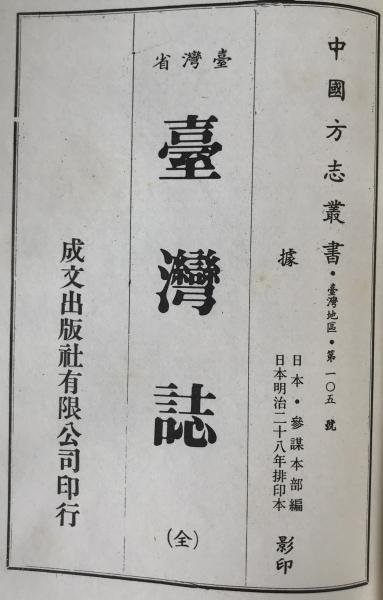 中國方志叢書・臺灣地區・第一〇五號
據
日本・參謀本部編
日本明治二十八年排印本
影印
臺灣省
臺灣誌
(全)
成文出版社有限公司印行